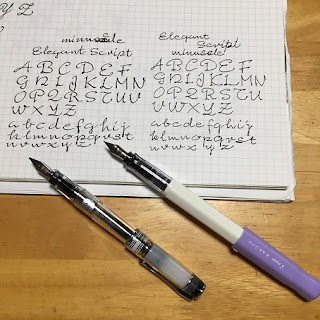 Y Z
minuscule
Elegant Script
A B C D E F
G H I J K L M N
O P Q R S T U
V W X Y Z
a b c d e f g h i j
k l m n o p q r s t
u v w x y z
Elegant
Script
minuscule
A B C D E F
G H I J K L M N
O P Q R S T U
V W X Y Z
a b c d e f g h i j
k l m n o p q r s t
u v w x y z